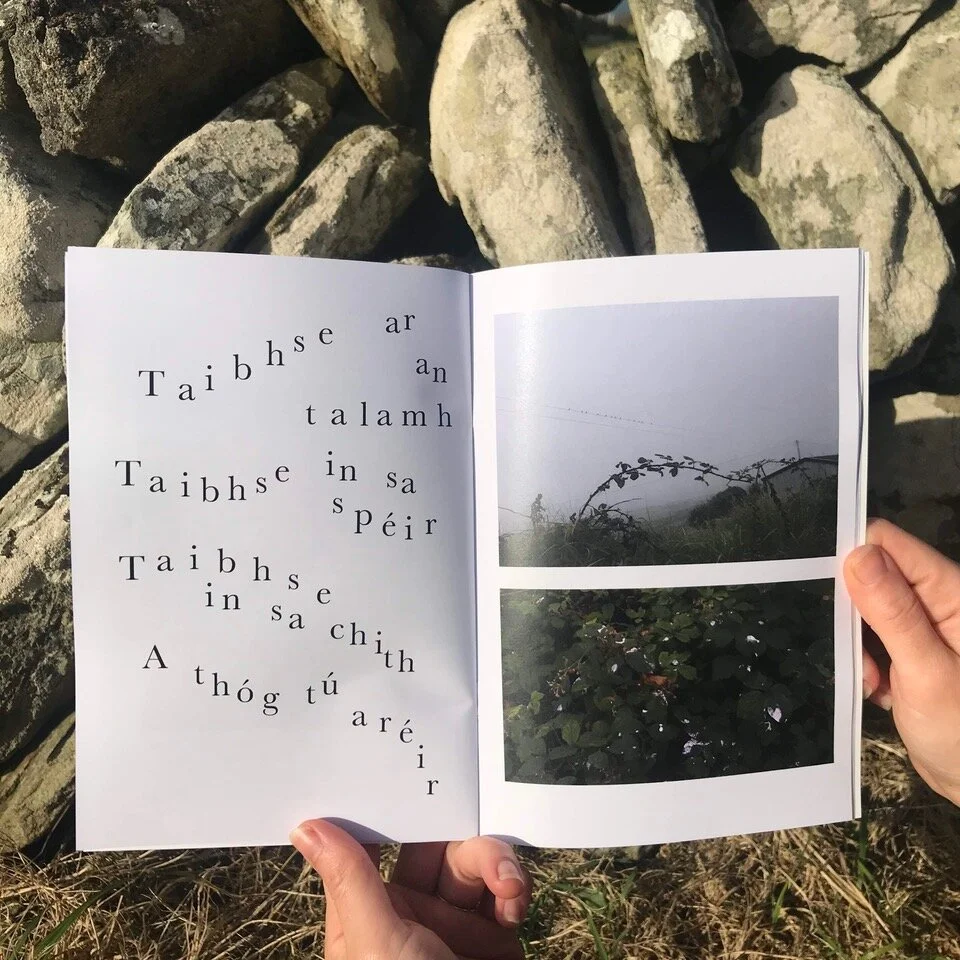 Taibhse ar
an
talamh
Taibhse in sa
spéir
Taibhse
in sa chith
A thóg tú
aréir